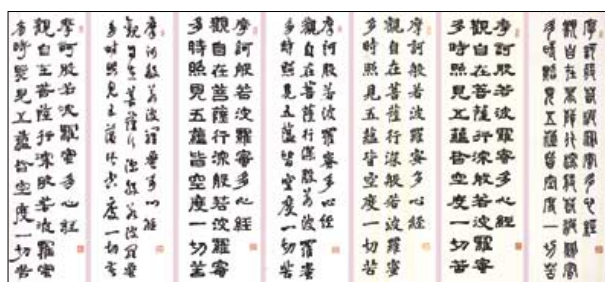 摩訶般若波羅蜜多心經
觀自在菩薩行深般若波羅蜜
多時照見五蘊皆空度一切苦
摩訶般若波羅蜜多心經
觀自在菩薩行深般若波羅蜜
多時照見五蘊皆空度一切苦
摩訶般若波羅蜜多心經
觀自在菩薩行深般若波羅蜜
多時照見五蘊皆空度一切苦
摩訶般若波羅蜜多心經
觀自在菩薩行深般若波羅蜜
多時照見五蘊皆空度一切苦
摩訶般若波羅蜜多心經
觀自在菩薩行深般若波羅蜜
多時照見五蘊皆空度一切苦
摩訶般若波羅蜜多心經
觀自在菩薩行深般若波羅蜜
多時照見五蘊皆空度一切苦
摩訶般若波羅蜜多心經
觀自在菩薩行深般若波羅蜜
多時照見五蘊皆空度一切苦